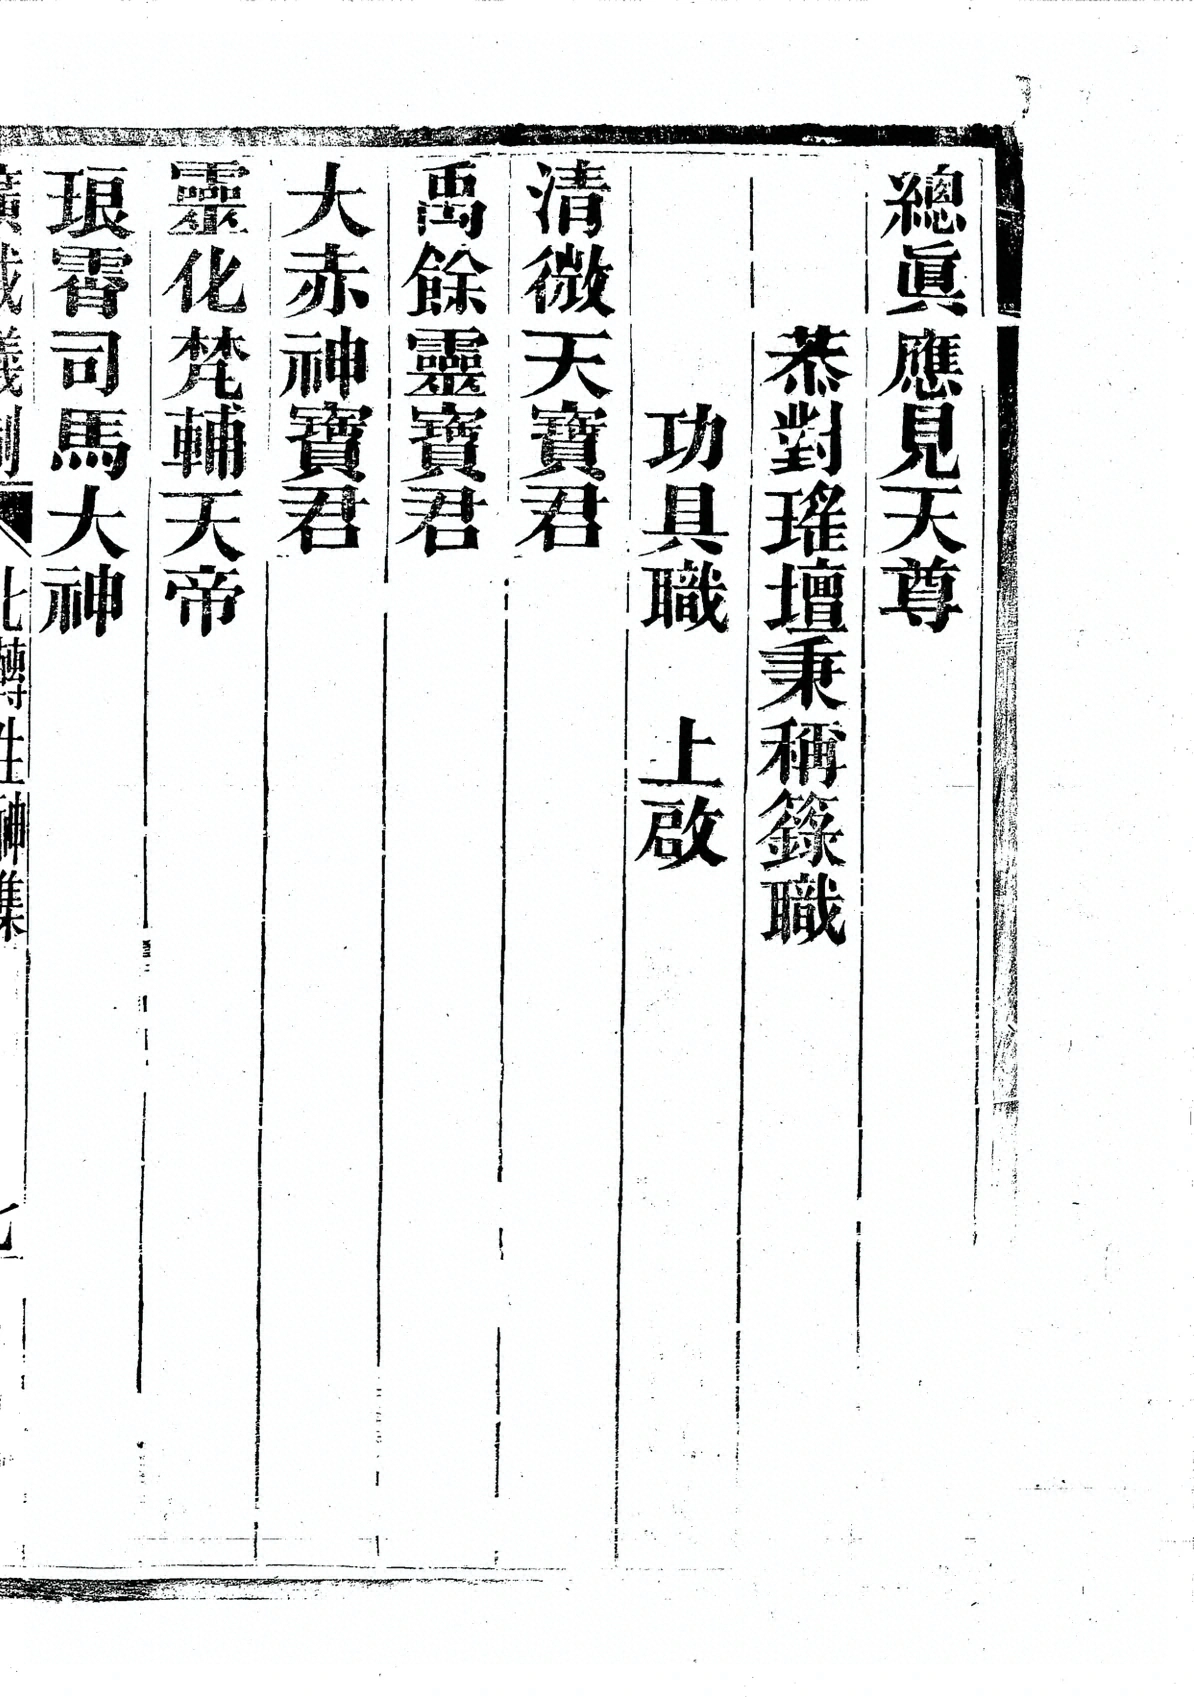 總眞應見天尊
恭對瑤壇秉稱籙職
功具職　上啟
清微天寶君
禹餘靈寶君
大赤神寶君
靈化梵輔天帝
琅霄司馬大神
廣成儀制　九轉生神集